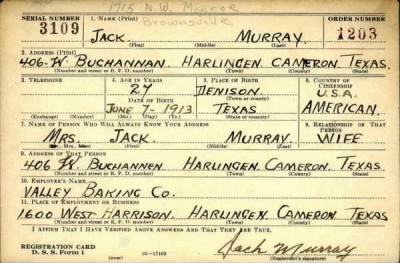 1715 N.W. Monroe
SERIAL NUMBER 1. Name (Print) Brownsville ORDER NUMBER
3109 JACK. MURRAY. 1203
(First) (Middle) (Last)
2. Address (Print)
406-W. BUCHANNAN. HARLINGEN. CAMERON. TEXAS.
(Number and street or R. F. D. number) (Town) (County) (State)
3. Telephone 4. Age in Years 5. Place of Birth 6. Country of Citizenship
27 DENISON. U.S.A.
Date of Birth (Town or county)
JUNE-7-1913 TEXAS AMERICAN.
(Exchange) (Number) (Mo.) (Day) (Yr.) (State or country)
7. Name of Person Who Will Always Know Your Address 8. Relationship of That Person
MRS. JACK MURRAY. WIFE
(Mr., Mrs., Miss) (First) (Middle) (Last)
9. Address of That Person
406 W. BUCHANNEN HARLINGEN. CAMERON. TEXAS
(Number and street or R. F. D. number) (Town) (County) (State)
10. Employer's Name
VALLEY BAKING CO.
11. Place of Employment or Business
1600 WEST HARRISON. HARLINGEN. CAMERON TEXAS
(Number and street or R. F. D. number) (Town) (County) (State)
I Affirm That I Have Verified Above Answers and That They Are True.
REGISTRATION CARD
D. S. S. Form 1 16—17105 Jack Murray
(Registrant's signature)